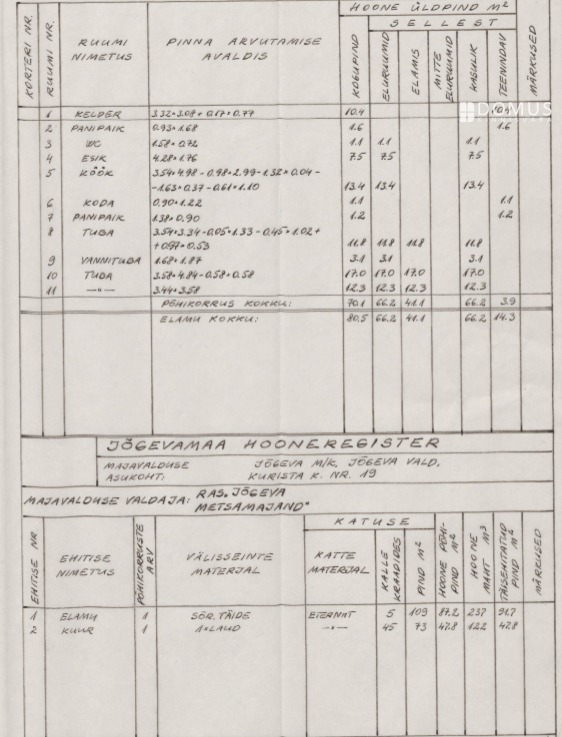 HOONE ÜLDPIND M²
SELLEST
KORTERI NR.
RUUMI NR.
RUUMI NIMETUS
PINNA ARVUTAMISE AVALDIS
KOGUPIND
ELURUUMID
ELAMIS
MITTE ELURUUMID
KASULIK
TEENINDAV
MÄRKUSED
DOMUS
1 KELDER 3.32×3.08+0.17×0.77 10.4 10.4
2 PANIPAIK 0.93×1.68 1.6 1.6
3 WC 1.58×0.72 1.1 1.1 1.1
4 ESIK 4.28×1.76 7.5 7.5 7.5
5 KÖÖK 3.54×4.98-0.98×2.99-1.32×0.04-
-1.63×0.37-0.61×1.10 13.4 13.4 13.4
6 KODA 0.90×1.22 1.1 1.1
7 PANIPAIK 1.38×0.90 1.2 1.2
8 TUBA 3.54×3.34-0.05×1.33-0.45×1.02+
+0.97×0.53 11.8 11.8 11.8 11.8
9 VANNITUBA 1.68×1.87 3.1 3.1 3.1
10 TUBA 3.58×4.84-0.58×0.58 17.0 17.0 17.0 17.0
11 —"— 3.44×3.58 12.3 12.3 12.3 12.3
PÕHIKORRUS KOKKU: 70.1 66.2 41.1 66.2 3.9
ELAMU KOKKU: 80.5 66.2 41.1 66.2 14.3
JÕGEVAMAA HOONEREGISTER
MAJAVALDUSE ASUKOHT: JÕGEVA M/K, JÕGEVA VALD,
KURISTA K. NR. 19
MAJAVALDUSE VALDAJA: RAS "JÕGEVA
METSAMAJAND"
KATUSE
EHITISE NR
EHITISE NIMETUS
PÕHIKORRUSTE ARV
VÄLISSEINTE MATERJAL
KATTE MATERJAL
KALLE KRAADIDES
PIND M²
HOONE PÕHI-PIND M²
HOONE MAHT M³
TÄISEHITATUD PIND M²
MÄRKUSED
1 ELAMU 1 SÕR. TÄIDE ETERNIT 5 109 87.2 237 91.7
2 KUUR 1 1×LAUD —"— 45 73 47.8 122 47.8